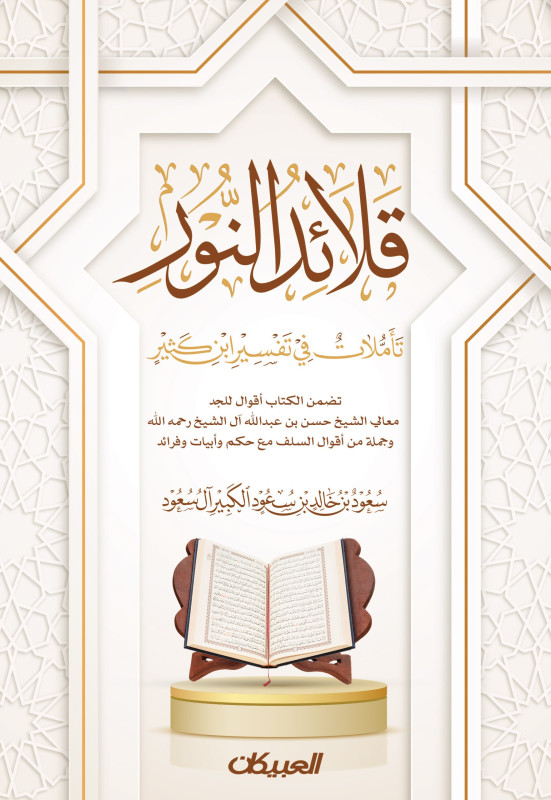 قَلَائِدُ النُّورِ
تَأَمُّلَاتٌ فِي تَفْسِيرِ ابْنِ كَثِيرٍ
تضمن الكتاب أقوال للجد
معالي الشيخ حسن بن عبدالله آل الشيخ رحمه الله
وجملة من أقوال السلف مع حكم وأبيات وفرائد
سُعُودُ بْنُ خَالِدِ بْنِ سُعُودِ الْكَبِيرِ آلُ سُعُود
العبيكان